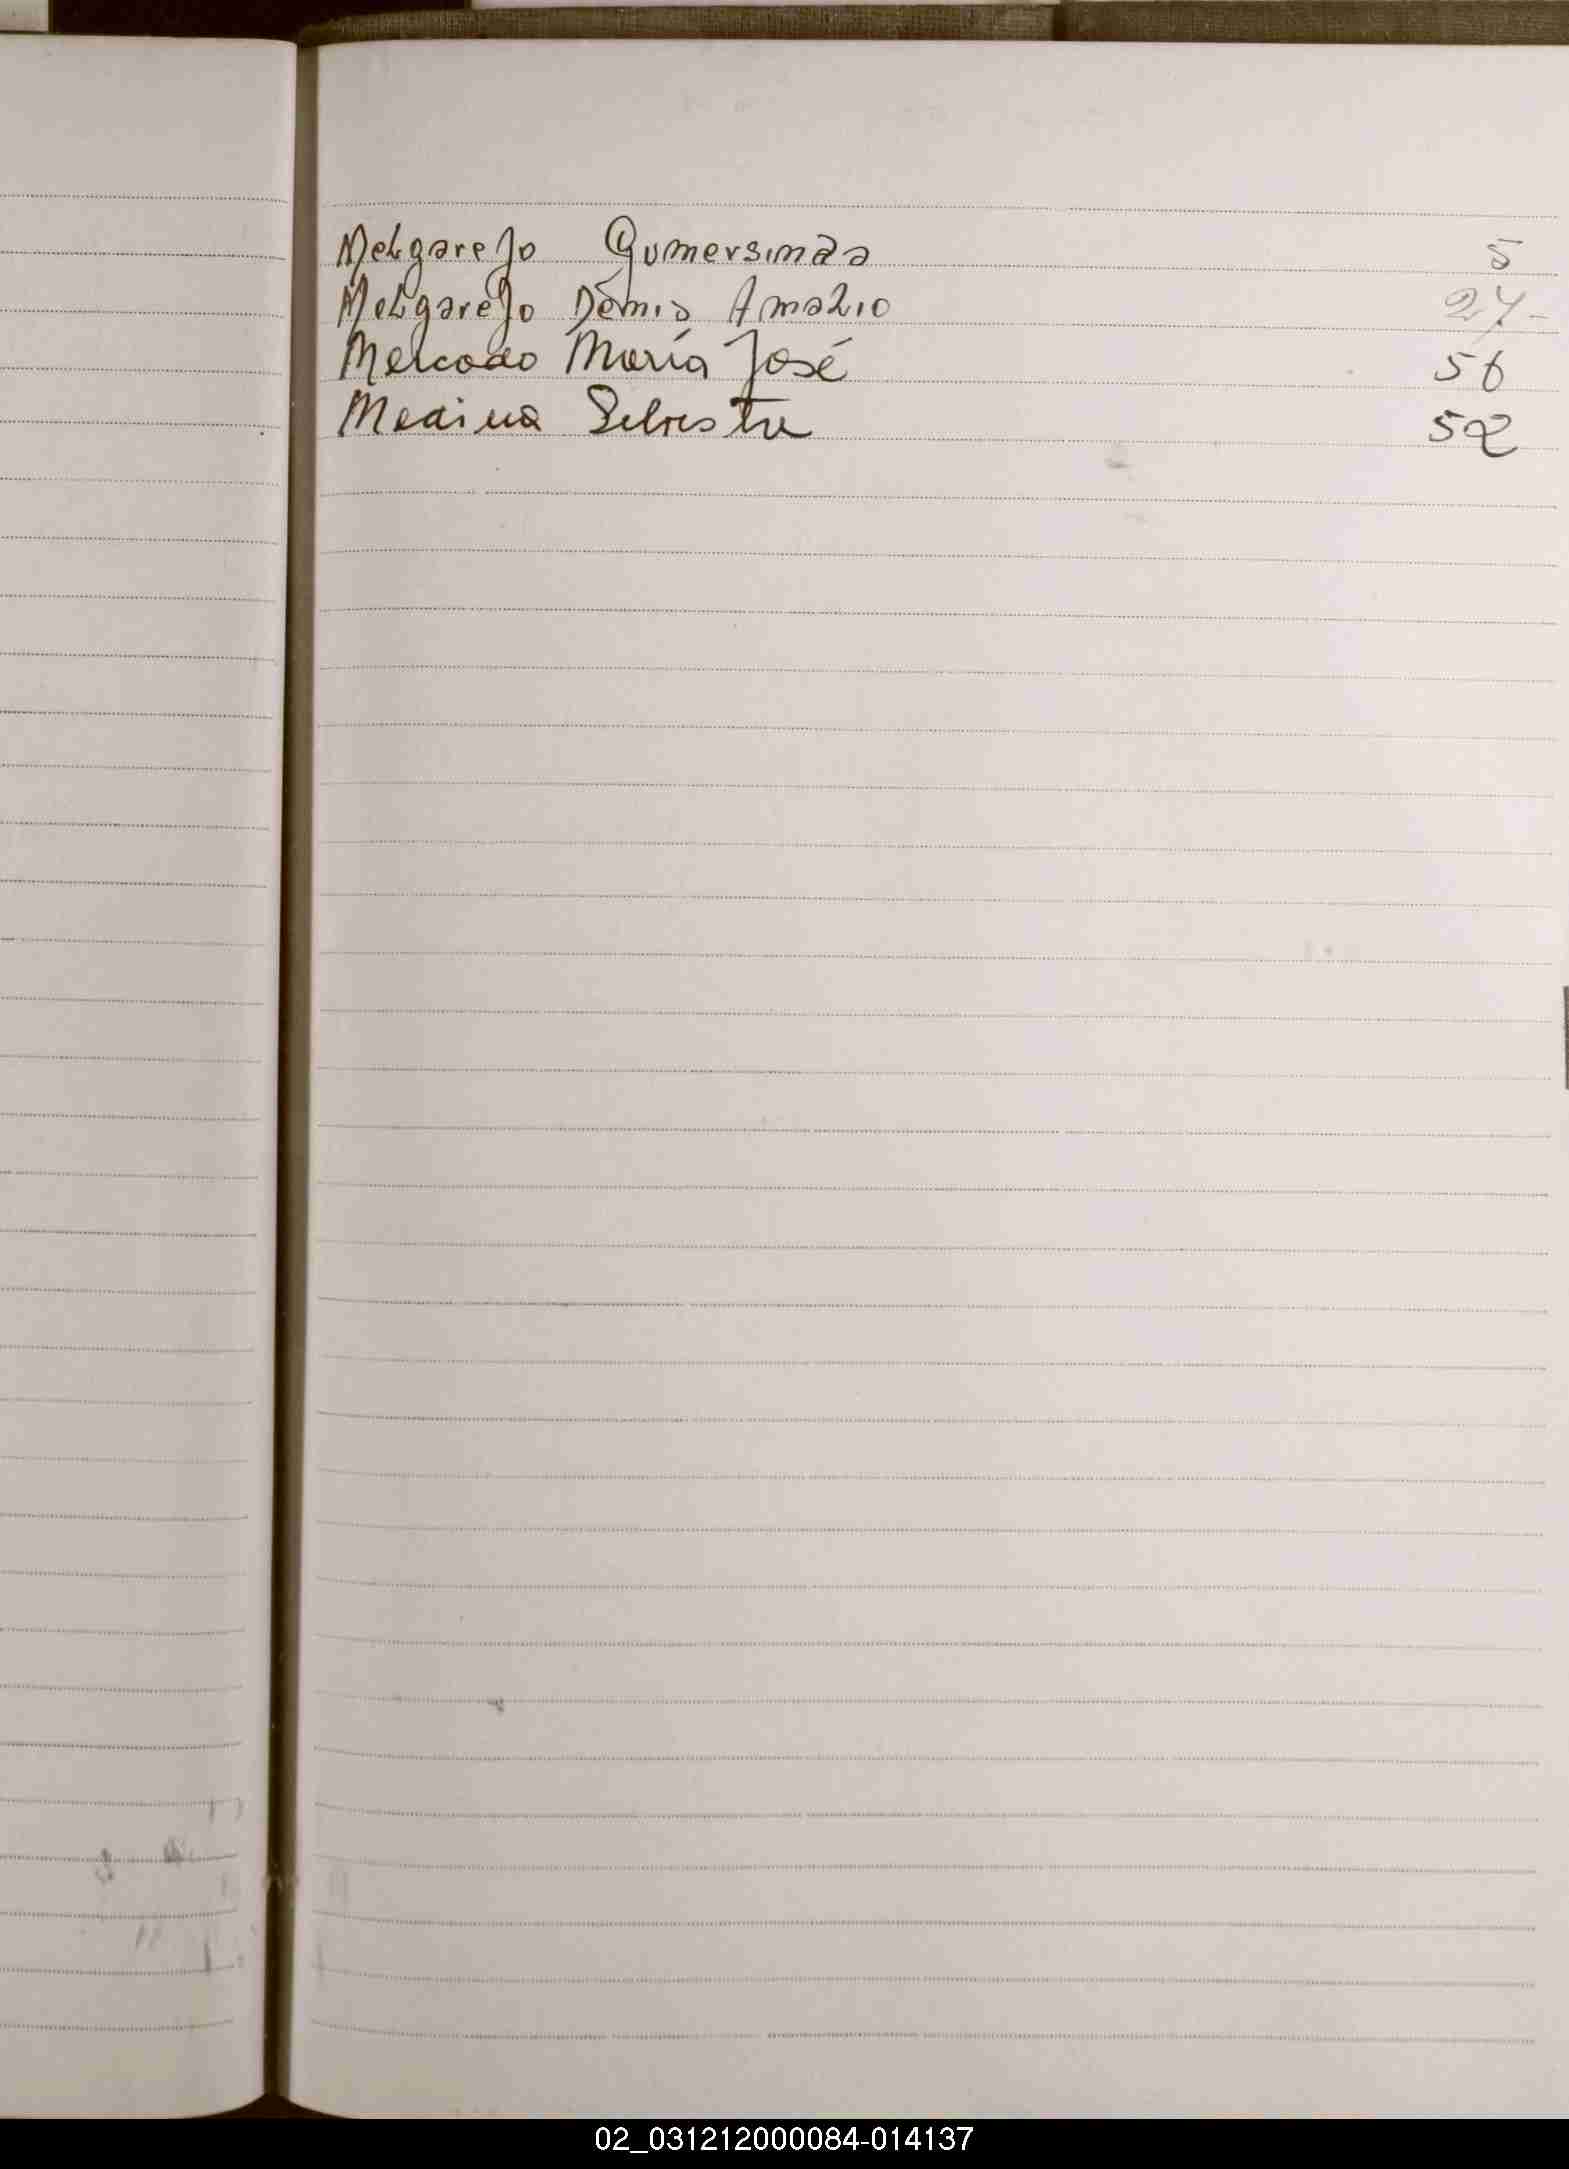 Melgarejo Gumersinda 5
Melgarejo Denis Amalio 27-
Mercado María José 56
Medina Silvestre 52
02_031212000084-014137